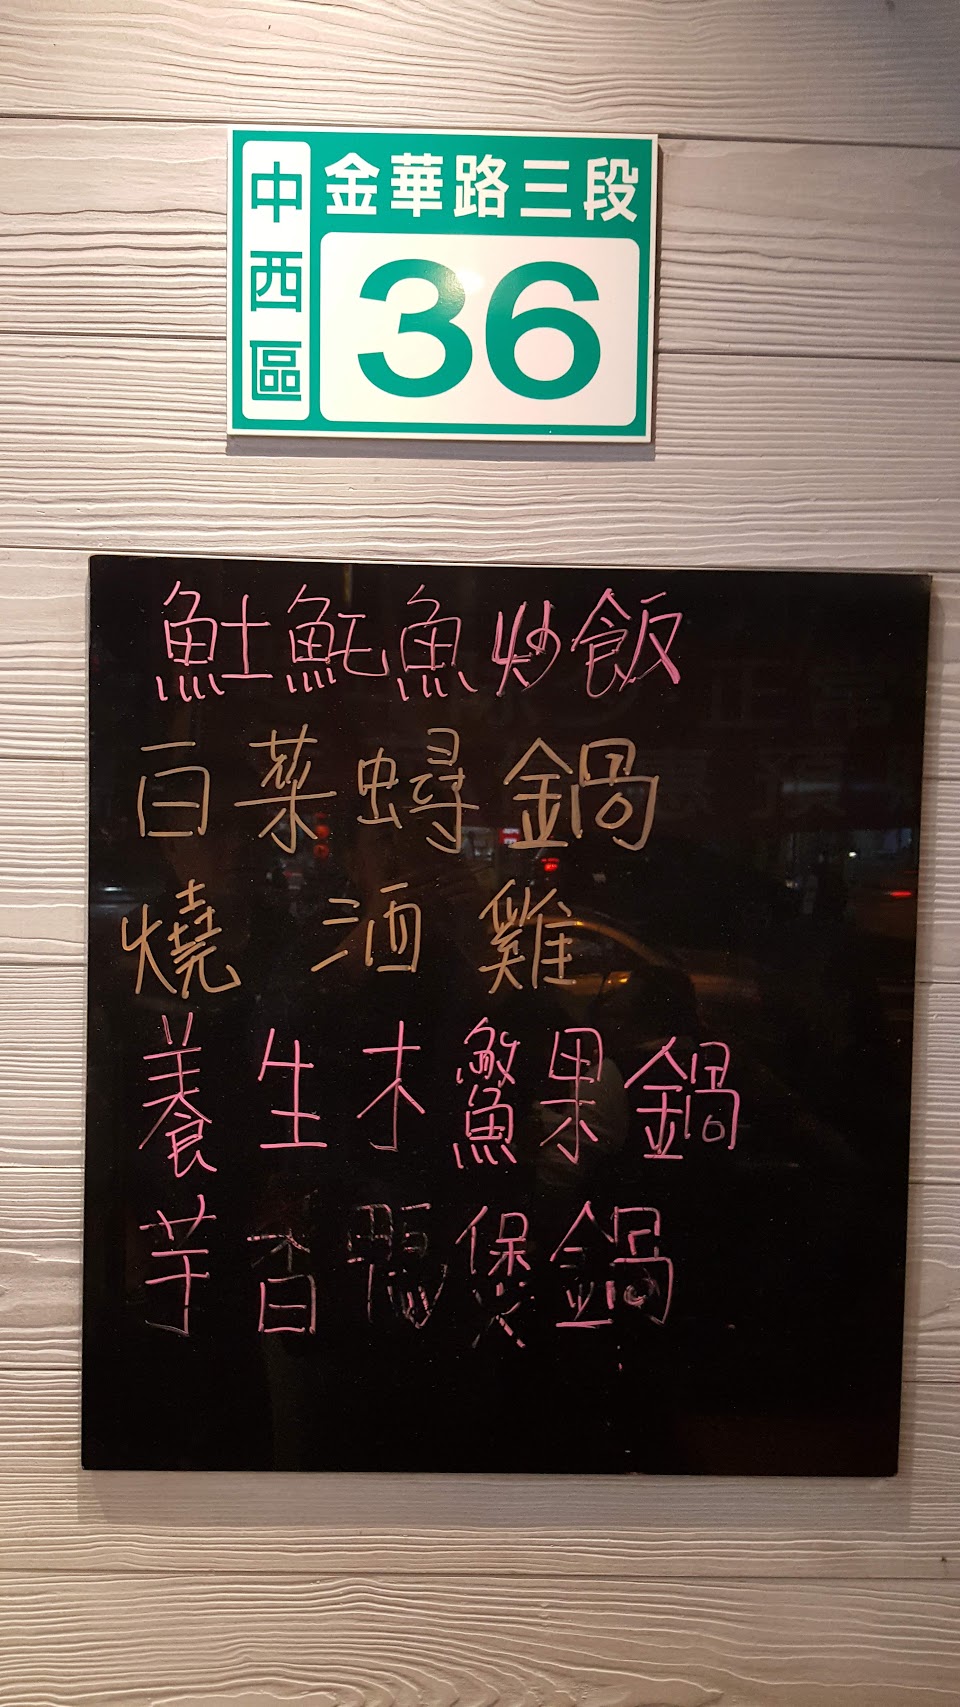 中西區
金華路三段
36
魠魠魚炒飯
白菜蟳鍋
燒酒雞
養生木鱉果鍋
芋香鴨煲鍋